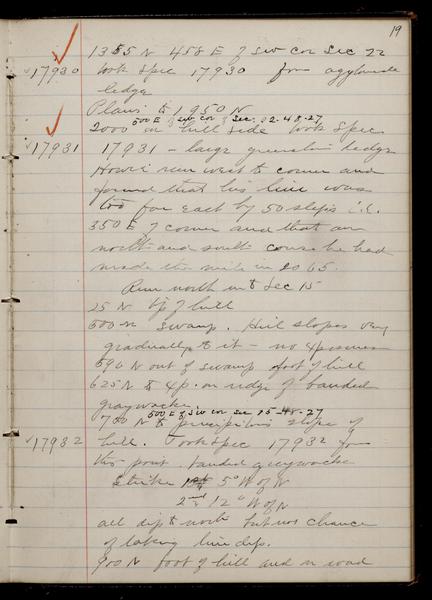 19
1385 N 458 E of sw cor Sec 22
17930 took spec 17930 from agglomerate
ledge
Plains to 1950 N
500 E of sw cor of Sec. 22-48-27
2000 on hill side took spec
17931 17931 – large greenstone ledge
Howe run west to corner and
found that his line was
too far east by 50 steps i.e.
350 E of corner and that on
north and south course he had
made the mile in 2065.
Run north into Sec 15
25 N top of hill
500 N swamp. Hill slopes very
gradually to it – no exposures
590 N out of swamp foot of hill
625 N to exp. on ridge of banded
graywacke.
500 E of sw cor sec 15-48-27
700 N to precipitous slope of
17932 hill. Took spec 17932 from
this point. banded graywacke
Strike 1st 5° W of N
2nd 12° W of N
all dip to north but no chance
of taking line dip.
900 N foot of hill and on road